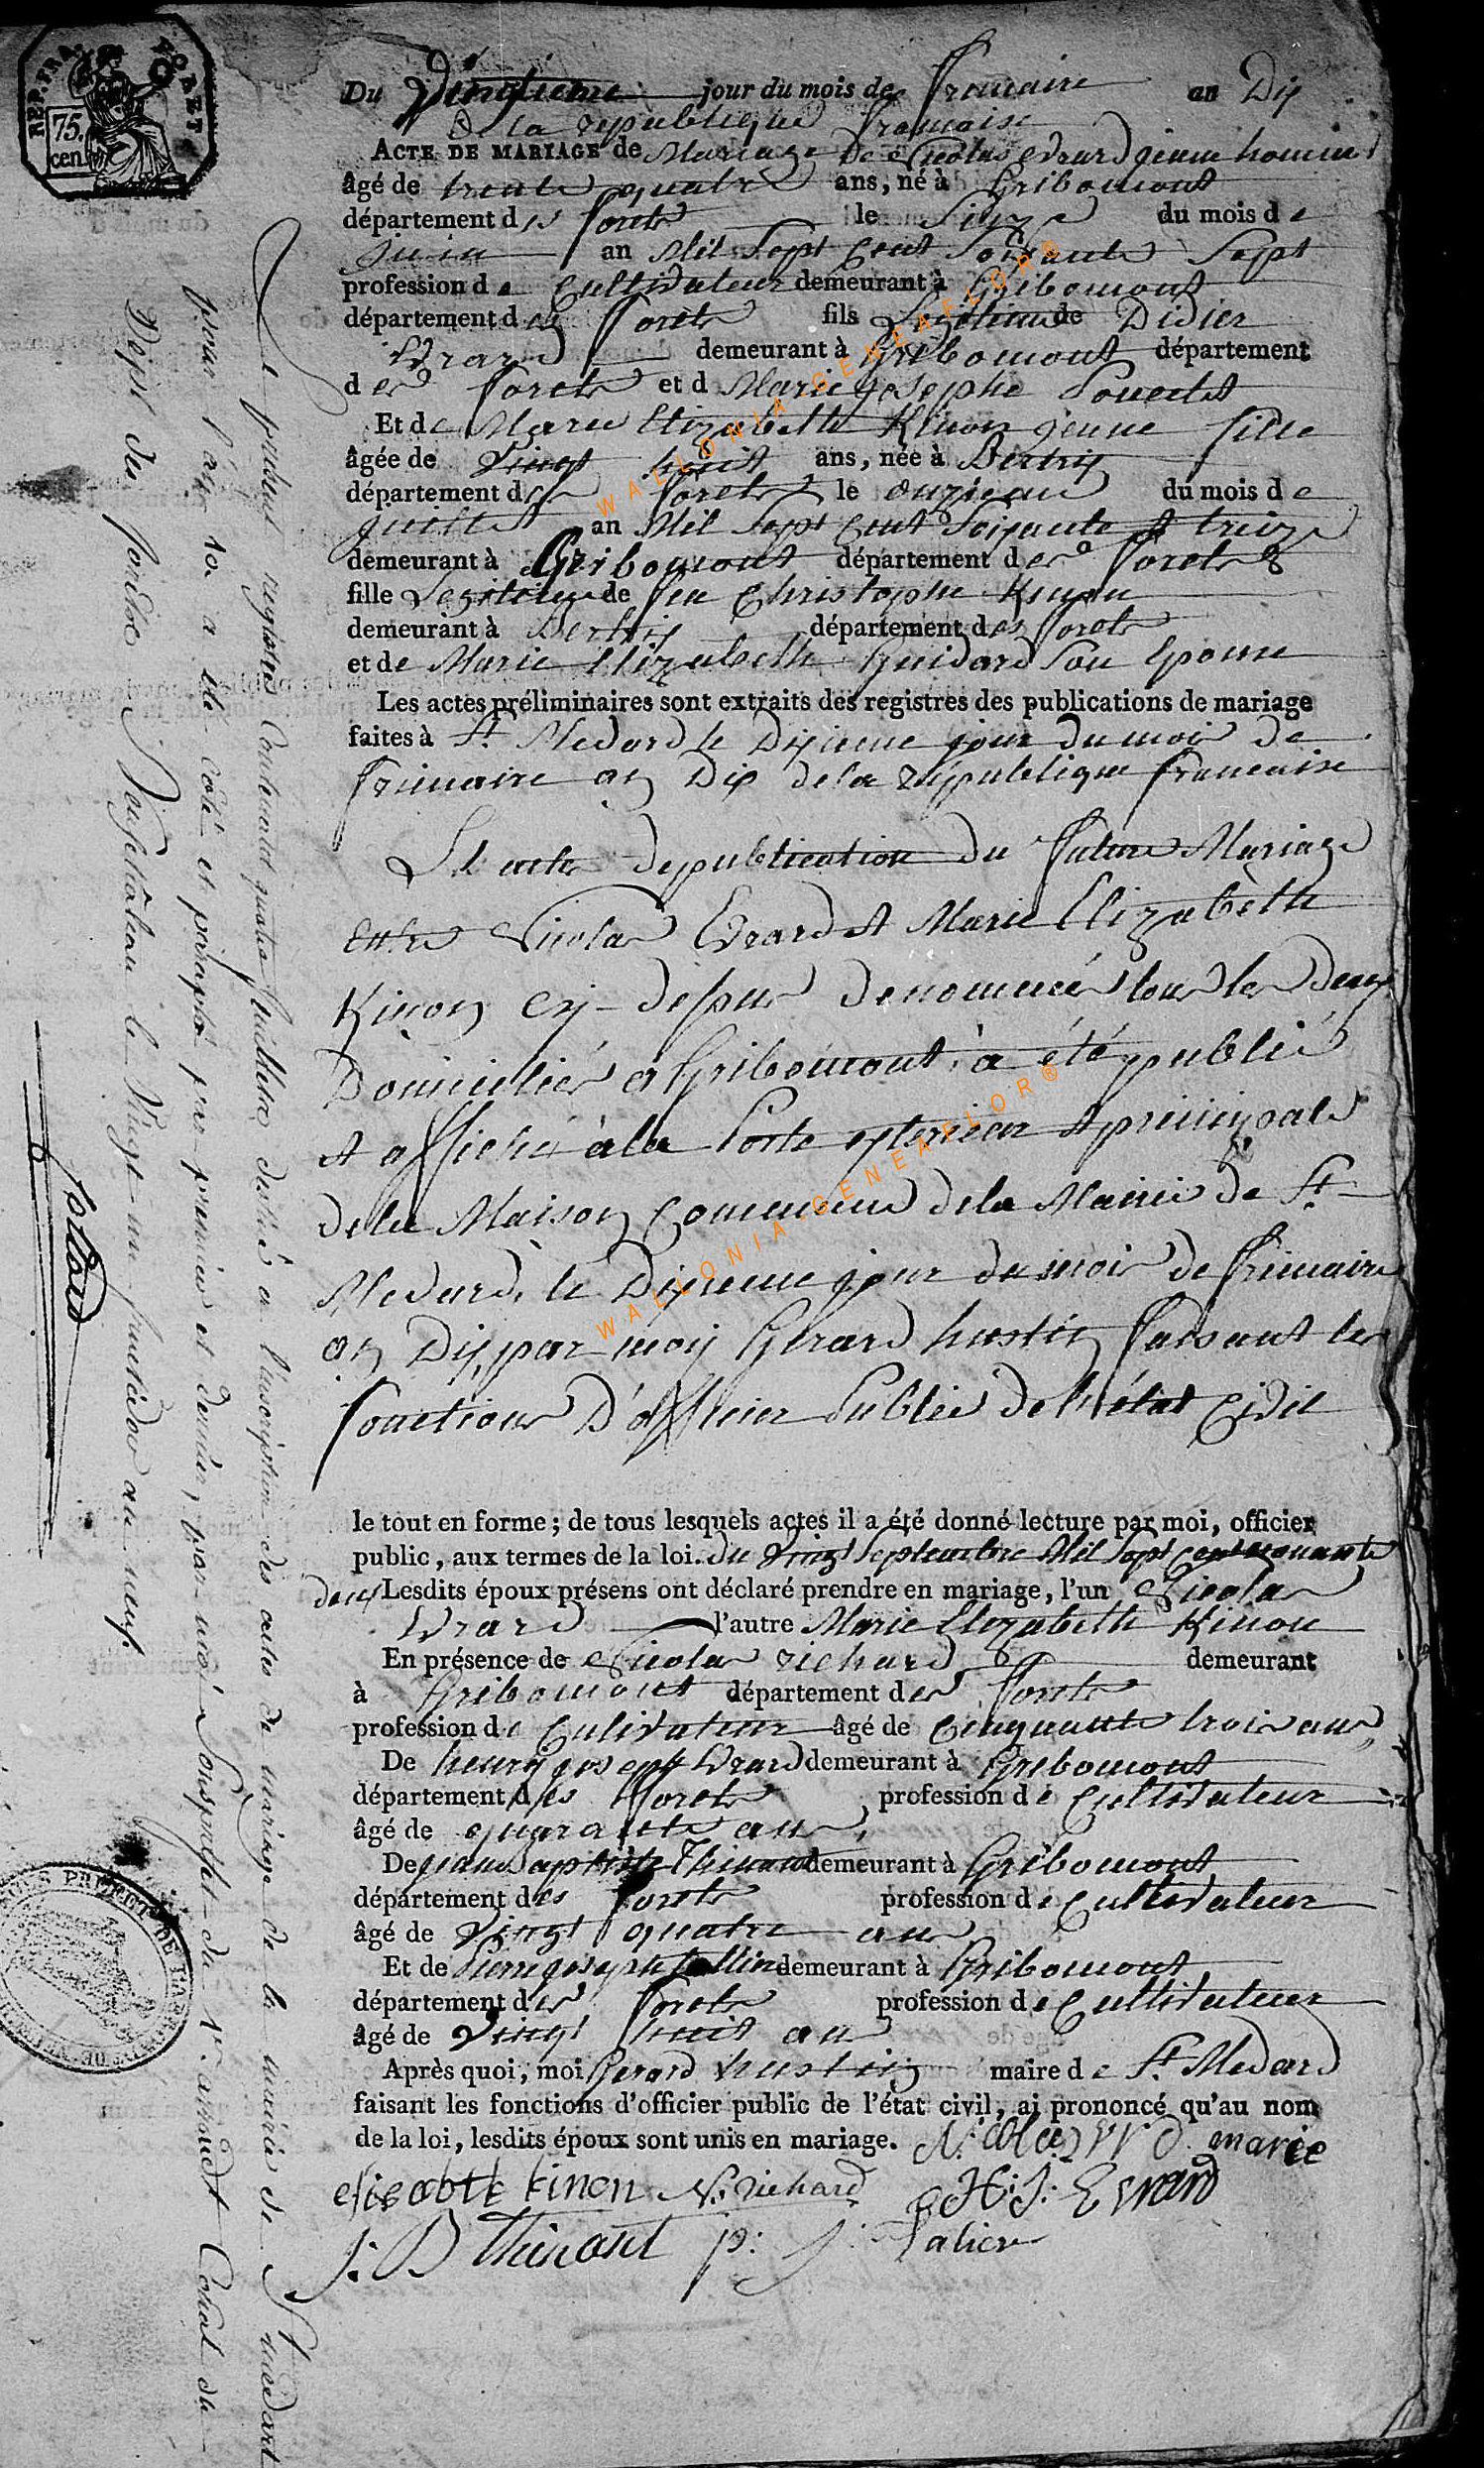 REP. FRA.
75.
cen.
Du Vingtieme jour du mois de frimaire an Dix
de la republique francaise
ACTE DE MARIAGE de Mariage de Nicolas Evrard jeune homme
âgé de trente quatre ans, né à Gribomont
département des forets le Seize du mois de
Juin an Mil Sept Cent Soixante Sept
profession de Cultivateur demeurant à Gribomont
département des forets fils Legitime de Didier
Evrard demeurant à Gribomont département
des forets et d Marie Josephe Pouchet
Et de Marie Elizabeth Kinon jeune fille
âgée de Vingt huit ans, née à Bertrix
département des forets le onzieme du mois de
juillet an Mil Sept Cent Soixante et treize
demeurant à Gribomont département des forets &
fille Legitime de feu Christophe Kinon
demeurant à Bertrix département des forets
et de Marie Elizabeth Guidard Son Epouse
Les actes préliminaires sont extraits des registres des publications de mariage
faites à St. Medard le Dixieme jour du mois de
frimaire an Dix de la republique francaise
L'acte de publication du futur Mariage
entre Nicolas Evrard et Marie Elizabeth
Kinon cy-dessus denommés tous les deux
Domiciliés a Gribomont, a été publié
et affiché à la Porte exterieur et principale
de la Maison Commune de la Mairie de St.
Medard, le Dixieme jour du mois de frimaire
an Dix, par moy Gerard hustin faisant les
fonctions D'officier Public de l'état Civil
le tout en forme; de tous lesquels actes il a été donné lecture par moi, officier
public, aux termes de la loi. du Vingt Septembre Mil Sept Cent nonante
deux Lesdits époux présens ont déclaré prendre en mariage, l'un Nicolas
Evrard l'autre Marie Elizabeth Kinon
En présence de Nicolas richard demeurant
à Gribomont département des forets
profession de Culivateur âgé de Cinquante trois ans,
De henry joseph Evrard demeurant à Gribomont
département des forets profession de Cultivateur
âgé de quarante ans,
De jean Baptiste Thinant demeurant à Gribomont
département des forets profession de Cultivateur
âgé de Vingt quatre ans
Et de Pierre joseph demeurant à Gribomont
département des forets profession de Cultivateur
âgé de Vingt huit ans
Après quoi, moi Gerard hustin maire de St. Medard
faisant les fonctions d'officier public de l'état civil, ai prononcé qu'au nom
de la loi, lesdits époux sont unis en mariage. Nicolas marie
elisabete kinon N: richard H: J: Evrard
J: B thinant p: J: Palier
Le présent registre Contenant quatre feuillets destiné a l'inscription des actes de mariage de la mairie de St medard
pour l'an 10 a été Coté et paraphé par premier et dernier, par moi Sousprefet du 1r. arrondt Comal du
Dépt des forêts Neufchâteau le Vingt-un fructidor an neuf.
WALLONIA-GENEAFLOR®
WALLONIA-GENEAFLOR®